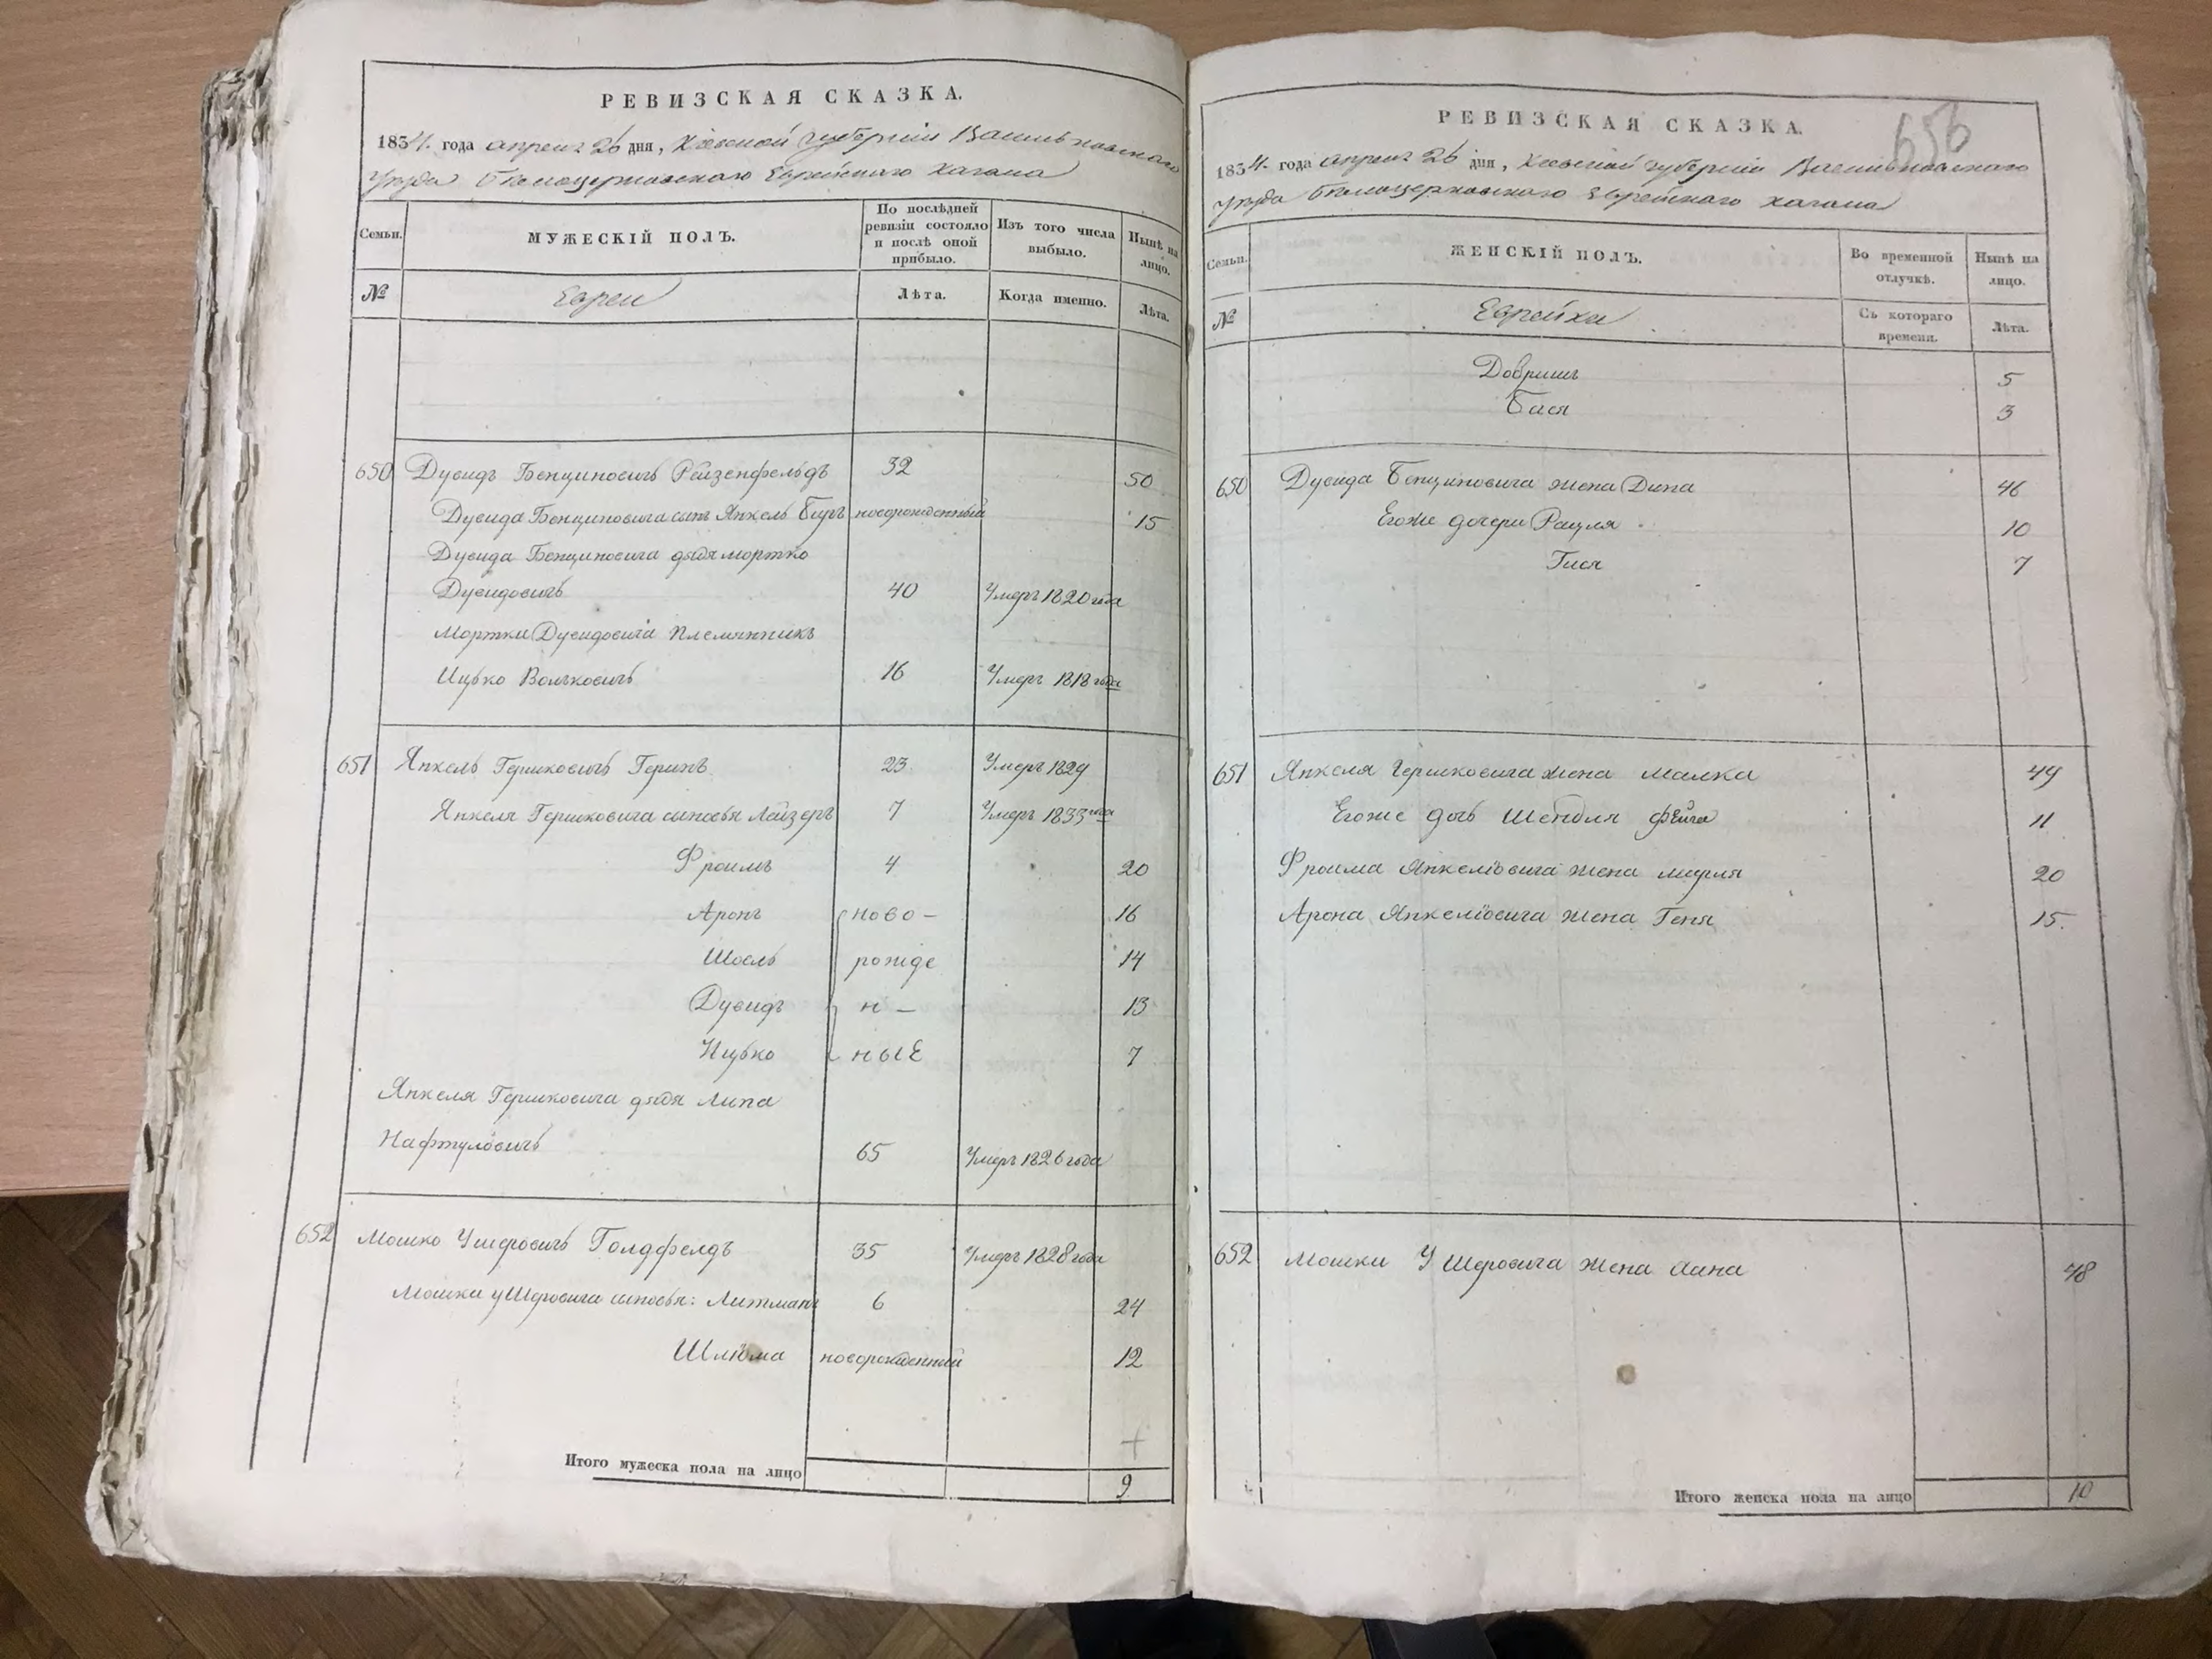 РЕВИЗСКАЯ СКАЗКА.
1834. года апреля 26 дня, Кіевской губерніи Васильковскаго
уѣзда Бѣлоцерковскаго Еврейскаго кагала
Семьи.
МУЖЕСКІЙ ПОЛЪ.
По послѣдней ревизіи состояло и послѣ оной прибыло.
Изъ того числа выбыло.
Нынѣ на лицо.
№
Евреи
Лѣта.
Когда именно.
Лѣта.
650 Дувидъ Бенционовичъ Рейзенфельдъ 32 50
Дувида Бенциновича сынъ Янкель Беръ новорожденный 15
Дувида Бенциновича дядя мортко
Дувидовичъ 40 Умеръ 1820 года
Мортки Дувидовича племянникъ
Ицько Вольковичъ 16 Умеръ 1818 года
651 Янкель Гершковичъ Геринъ 23 Умеръ 1829
Янкеля Гершковича сыновья Лейзеръ 7 Умеръ 1833 года
Фроимъ 4 20
Аронъ ново- 16
Шоель рожде 14
Дувидъ н - 13
Ицько ные 7
Янкеля Гершковича дядя Липа
Нафтуловичъ 65 Умеръ 1826 года
652 Мошко Ушеровичъ Голдфелдъ 35 Умеръ 1828 года
Мошки Ушеровича сыновья: Литманъ 6 24
Шлюма новорожденный 12
Итого мужеска пола на лицо 9
656
РЕВИЗСКАЯ СКАЗКА.
1834. года апреля 26 дня, Кіевской губерніи Васильковскаго
уѣзда Бѣлоцерковскаго Еврейскаго кагала
Семьи.
ЖЕНСКІЙ ПОЛЪ.
Во временной отлучкѣ.
Нынѣ на лицо.
№
Еврейки
Съ котораго времени.
Лѣта.
Добришъ 5
Бася 3
650 Дувида Бенциновича жена Дина 46
Егоже дочери Рацля 10
Гися 7
651 Янкеля Гершковича жена малка 49
Егоже дочь Шендля Фейга 11
Фроима Янкеліовича жена мирля 20
Арона Янкеліовича жена Геня 15.
652 Мошки Ушеровича жена 48
Итого женска пола на лицо 10